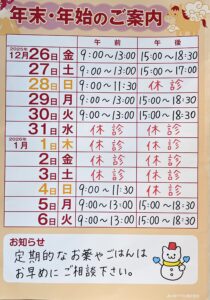 年末・年始のご案内
午前 午後
2025年
12月 26日 金 9:00～13:00 15:00～18:30
27日 土 9:00～13:00 15:00～17:00
28日 日 9:00～11:30 休診
29日 月 9:00～13:00 15:00～18:30
30日 火 9:00～13:00 15:00～18:30
31日 水 休診 休診
2026年
1月 1日 木 休診 休診
2日 金 休診 休診
3日 土 休診 休診
4日 日 9:00～11:30 休診
5日 月 9:00～13:00 15:00～18:30
6日 火 9:00～13:00 15:00～18:30
お知らせ
定期的なお薬やごはんは
お早めにご相談下さい。